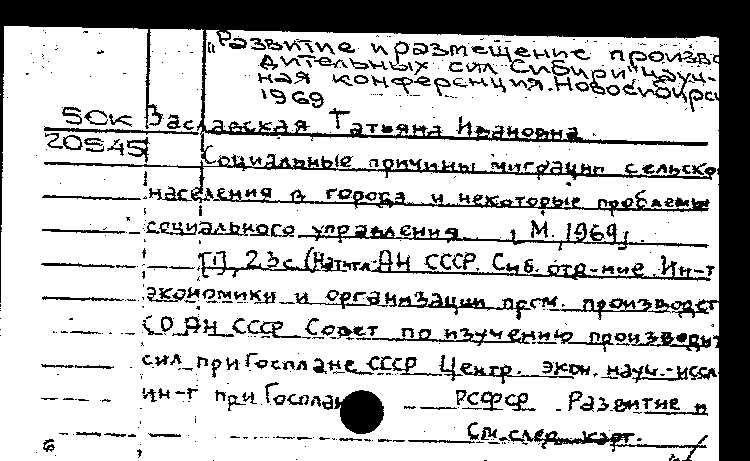 "Развитие и размещение произво
дительных сил Сибири" науч-
ная конференция. Новосибирск
1969
50к Заславская Татьяна Ивановна
20545 Социальные причины миграции сельско
населения в города и некоторые проблемы
социального управления [М., 1969]
[1], 23с. (На тит.л.: АН СССР. Сиб. отд-ние. Ин-т
экономики и организации пром. производст
СО АН СССР Совет по изучению производит
сил при Госплане СССР Центр. экон. науч.-иссл
ин-т при Госплан РСФСР Развитие и
См. след. карт.
6